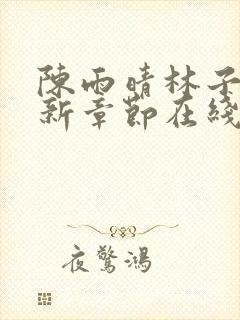 陳雨晴林子
新章節在綫
夜驚鴻